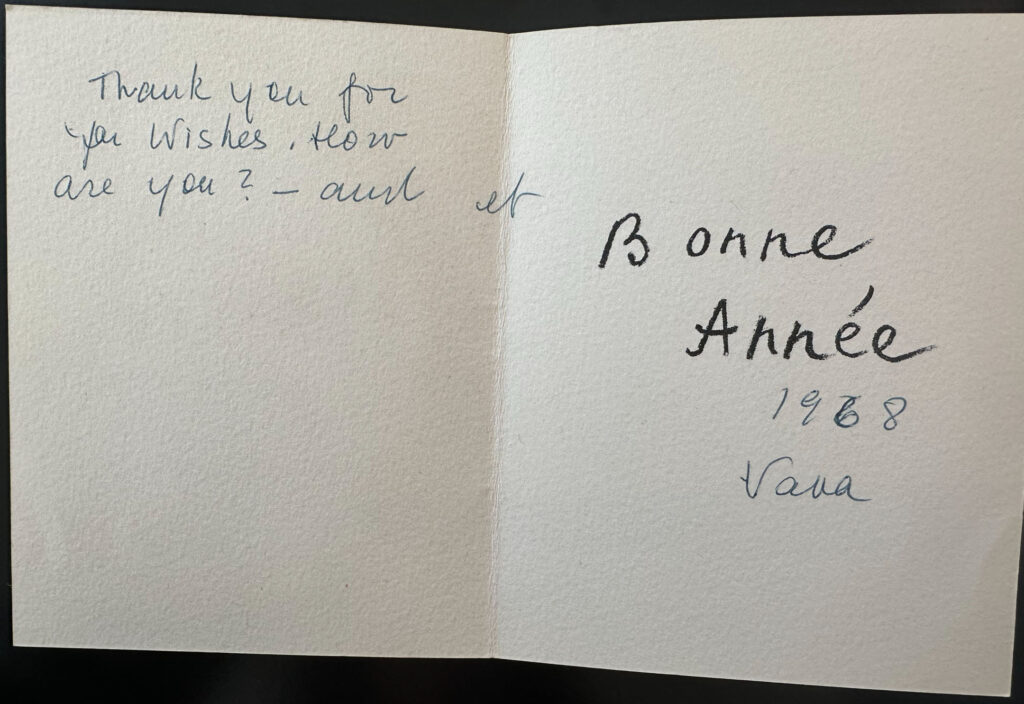 Thank you for
your Wishes. How
are you? – and et
Bonne
Année
1968
Vava